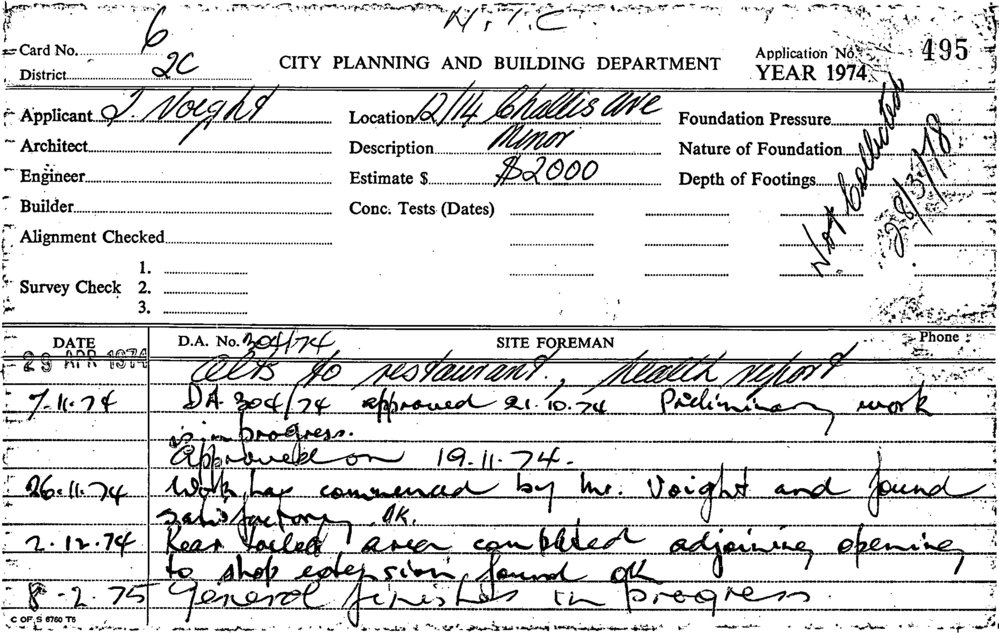 N.T.C
Card No. 6
District 2C
CITY PLANNING AND BUILDING DEPARTMENT
Application No. 495
YEAR 1974
Applicant J. Voight
Location 12/14 Challis Ave
Foundation Pressure
Architect
Description Minor
Nature of Foundation
Engineer
Estimate $ $2000
Depth of Footings
Builder
Conc. Tests (Dates)
Not Collected
28/3/78
Alignment Checked
Survey Check
1.
2.
3.
DATE
D.A. No. 304/74
SITE FOREMAN
Phone :
29 APR 1974 Alts to restaurant, health report
7-11-74 DA 304/74 approved 21.10.74 Preliminary work
is in progress.
Approved on 19.11.74.
26.11.74 Work has commenced by Mr. Voight and found
satisfactory OK.
2.12.74 Rear toilet area completed adjoining opening
to shop extension found ok
8-2-75 General finishes in progress
C OF S 6760 T5